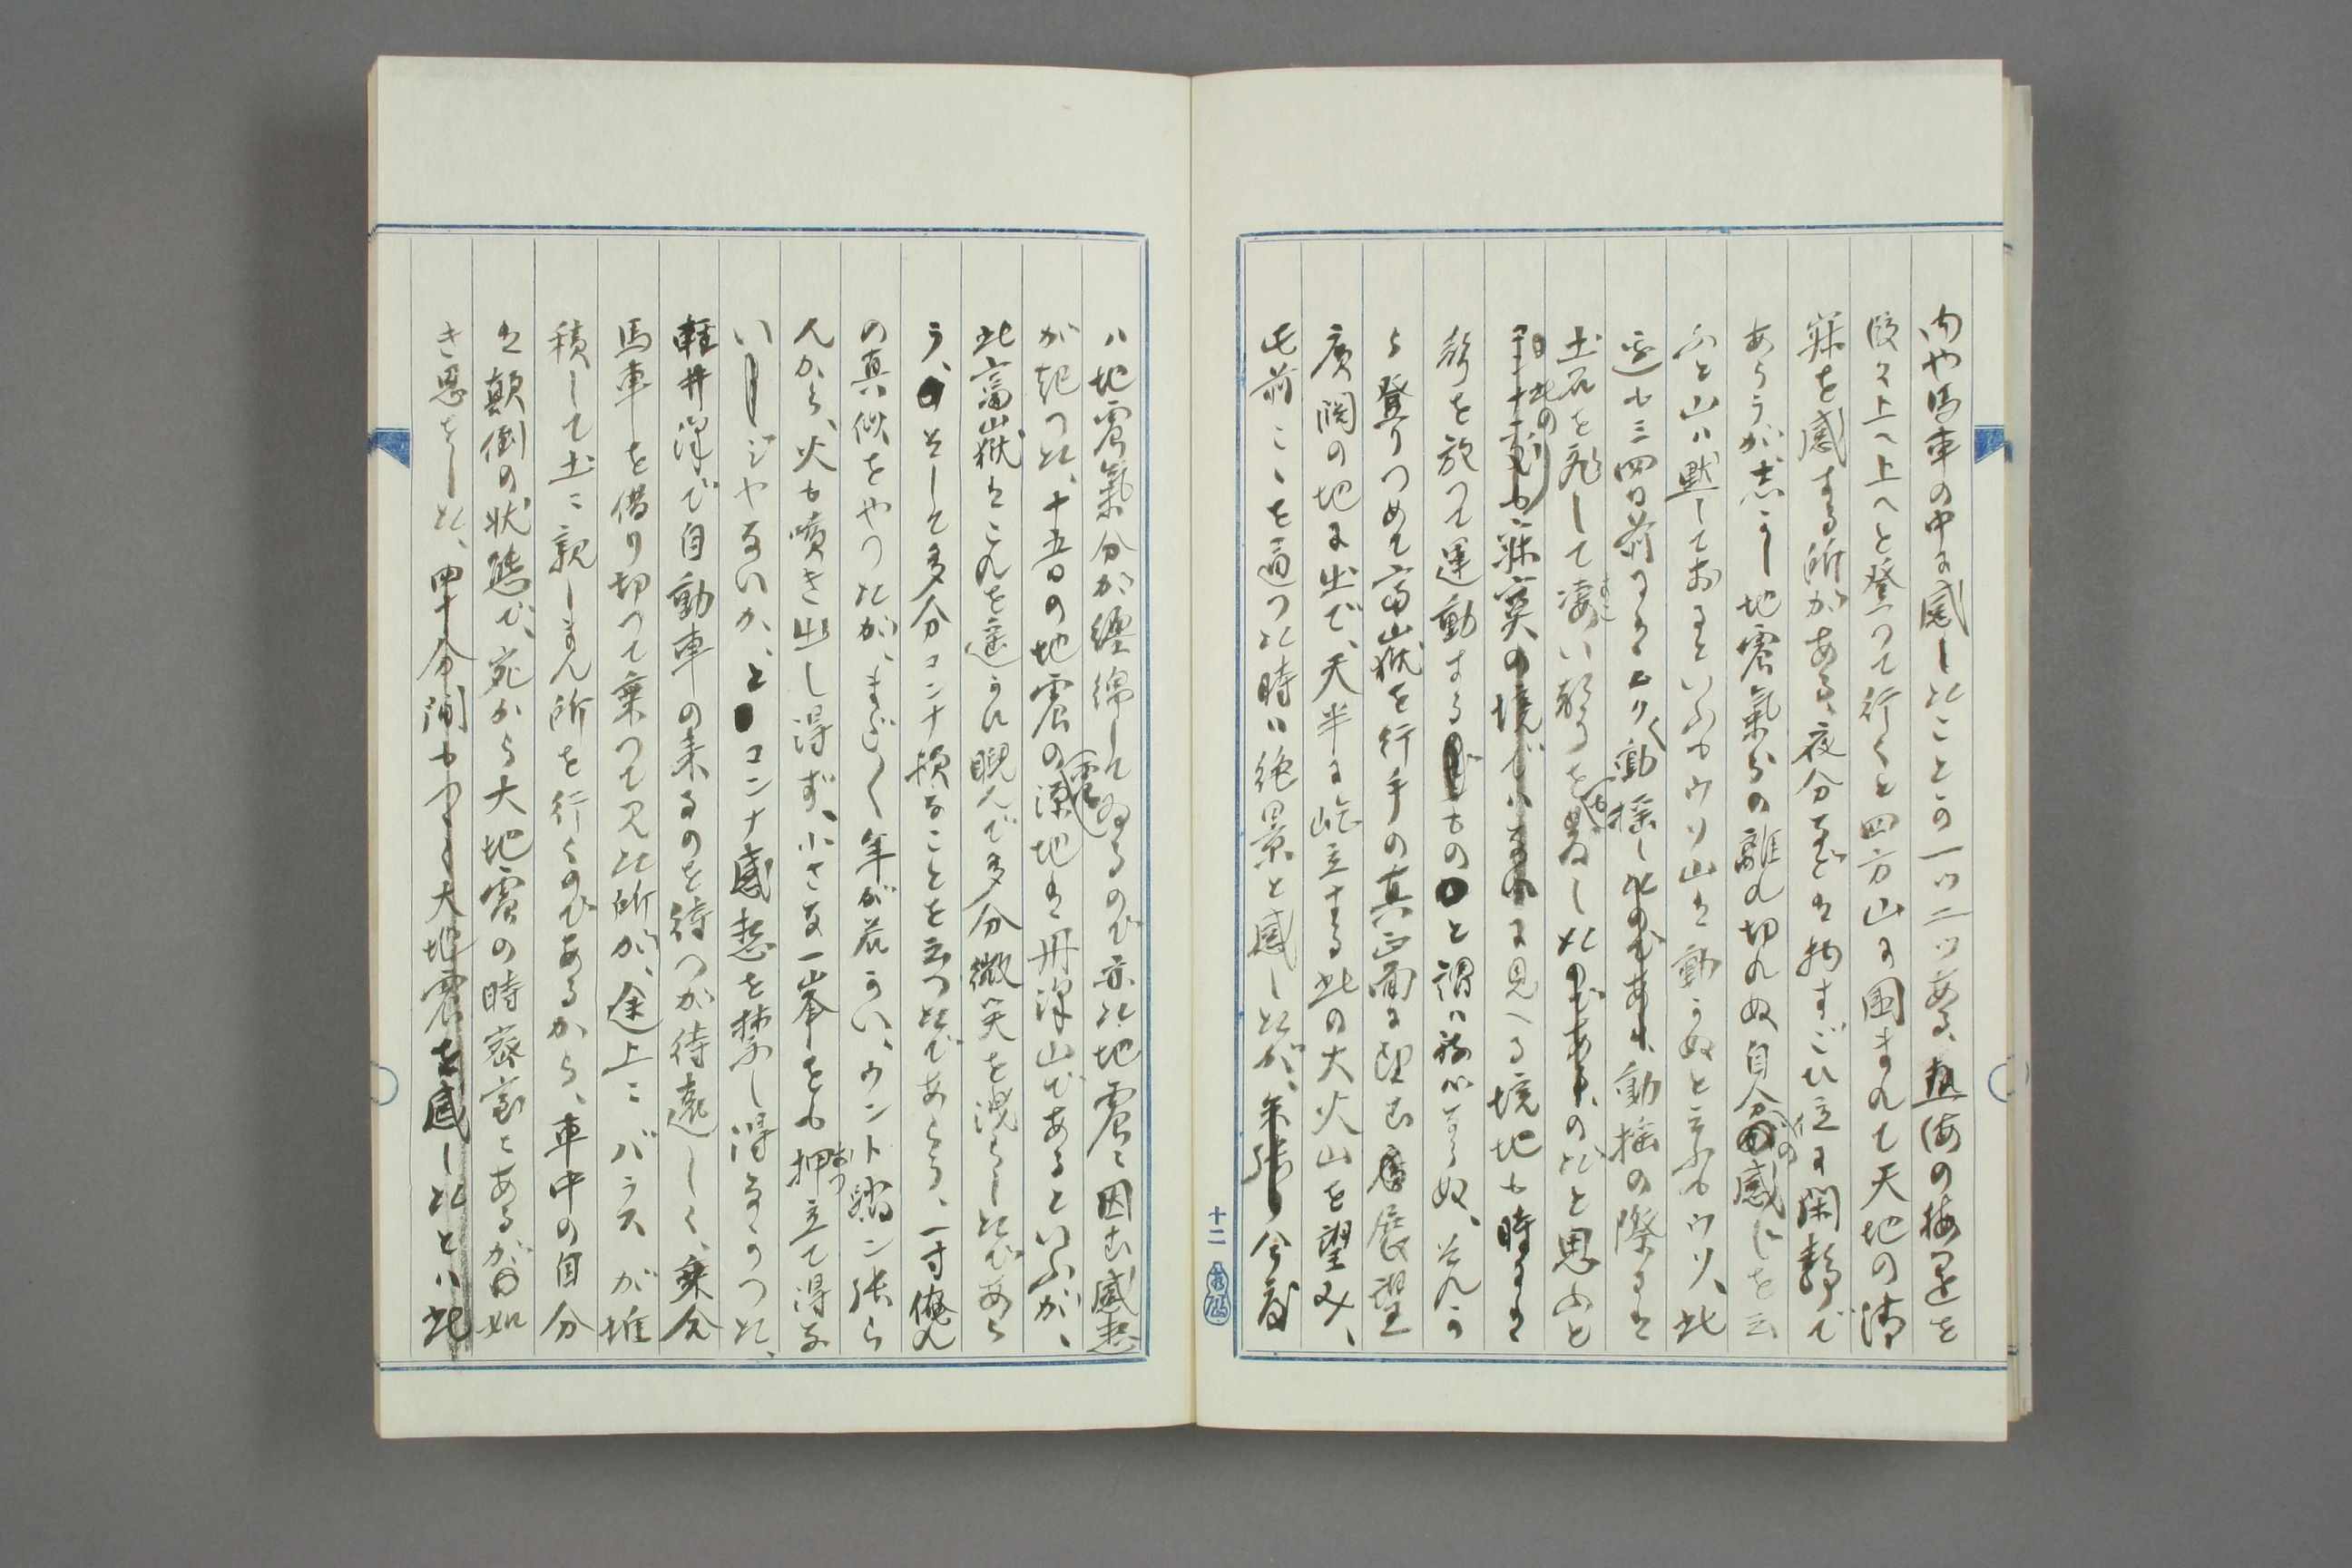 内や馬車の中に感したことの一ツ二ツある、熱海の梅園を
後に上へ上へと登つて行くと四方山に囲まれて天地の清
寂を感する所がある、夜分などは物すごい位に閑静で
あらうが、恐ろし地震氣分の離れ切れぬ自分の感じを云
ふと山ハ默しておるといふもウソ山は動かぬと云ふもウソ、此
辺も三四日前にはユリ〱動揺した、動揺の際には
土石を飛して凄い聲を発したのだと思ふと
此の寂寞の境に見へる境地も時には
聲を放つて運動するものと謂ハねバならぬ、それか
ら登りつめて富嶽を行手の真正面に望む展望
廣闊の地に出で、天半に屹立する此の大火山を望み、
此前こゝを通つた時ハ絶景と感したが、今度
十二
ハ地震氣分が纏綿してゐるので亦た地震ニ因む感想
が起つた、十五日の地震の震源地は丹沢山であるといふが、
此富嶽はこれを遥かに睨んで多分微笑を洩らしたであら
う、そして多分コンナ損なことを云つたであらう、一寸俺れ
の真似をやつたが、まだ〱年が若かい、ウント踏ン張ら
んから、火も噴き出し得ず、小さな一峯をも押立て得な
いジヤないか、とコンナ感想を禁し得なかつた、
軽井沢で自動車の来るのを待つが待遠しく、乗合
馬車を借り切つて乗つて見た所が、途上ニバラスが堆
積して土ニ親しまん所を行くのであるから、車中の自分
は顛倒の状態で、宛から大地震の時家ニあるが如
き思をした、四十分間も大地震を感したとハ此